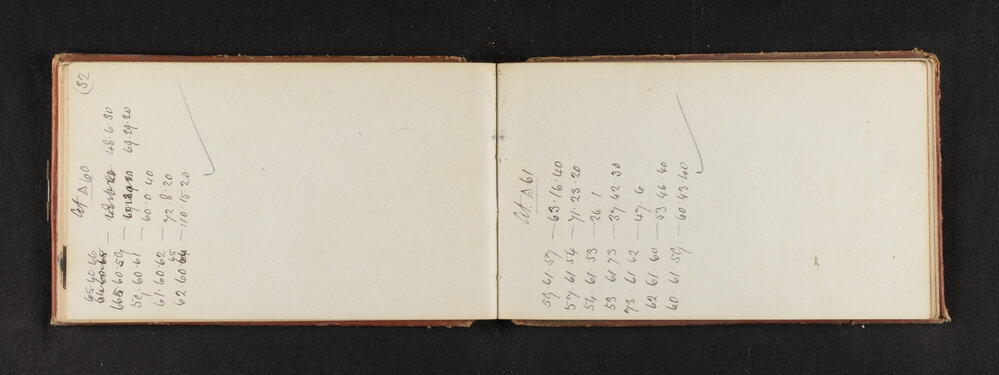 (32
At Δ 60
65.60.66 — 48.6.30
66 60.59 — 69.29.20
59.60.61 — 60.0.40
61.60.62 — 72.8.20
65
62.60 — 110.15.20
At. Δ 61
59.61.57 — 63.16.40
57.61.54 — 71.23.20
54.61.53 — 26.1
53.61.73 — 37.42.30
73.61.62 — 47.6
62.61.60 — 53.46.40
60.61.59 — 60.43.40